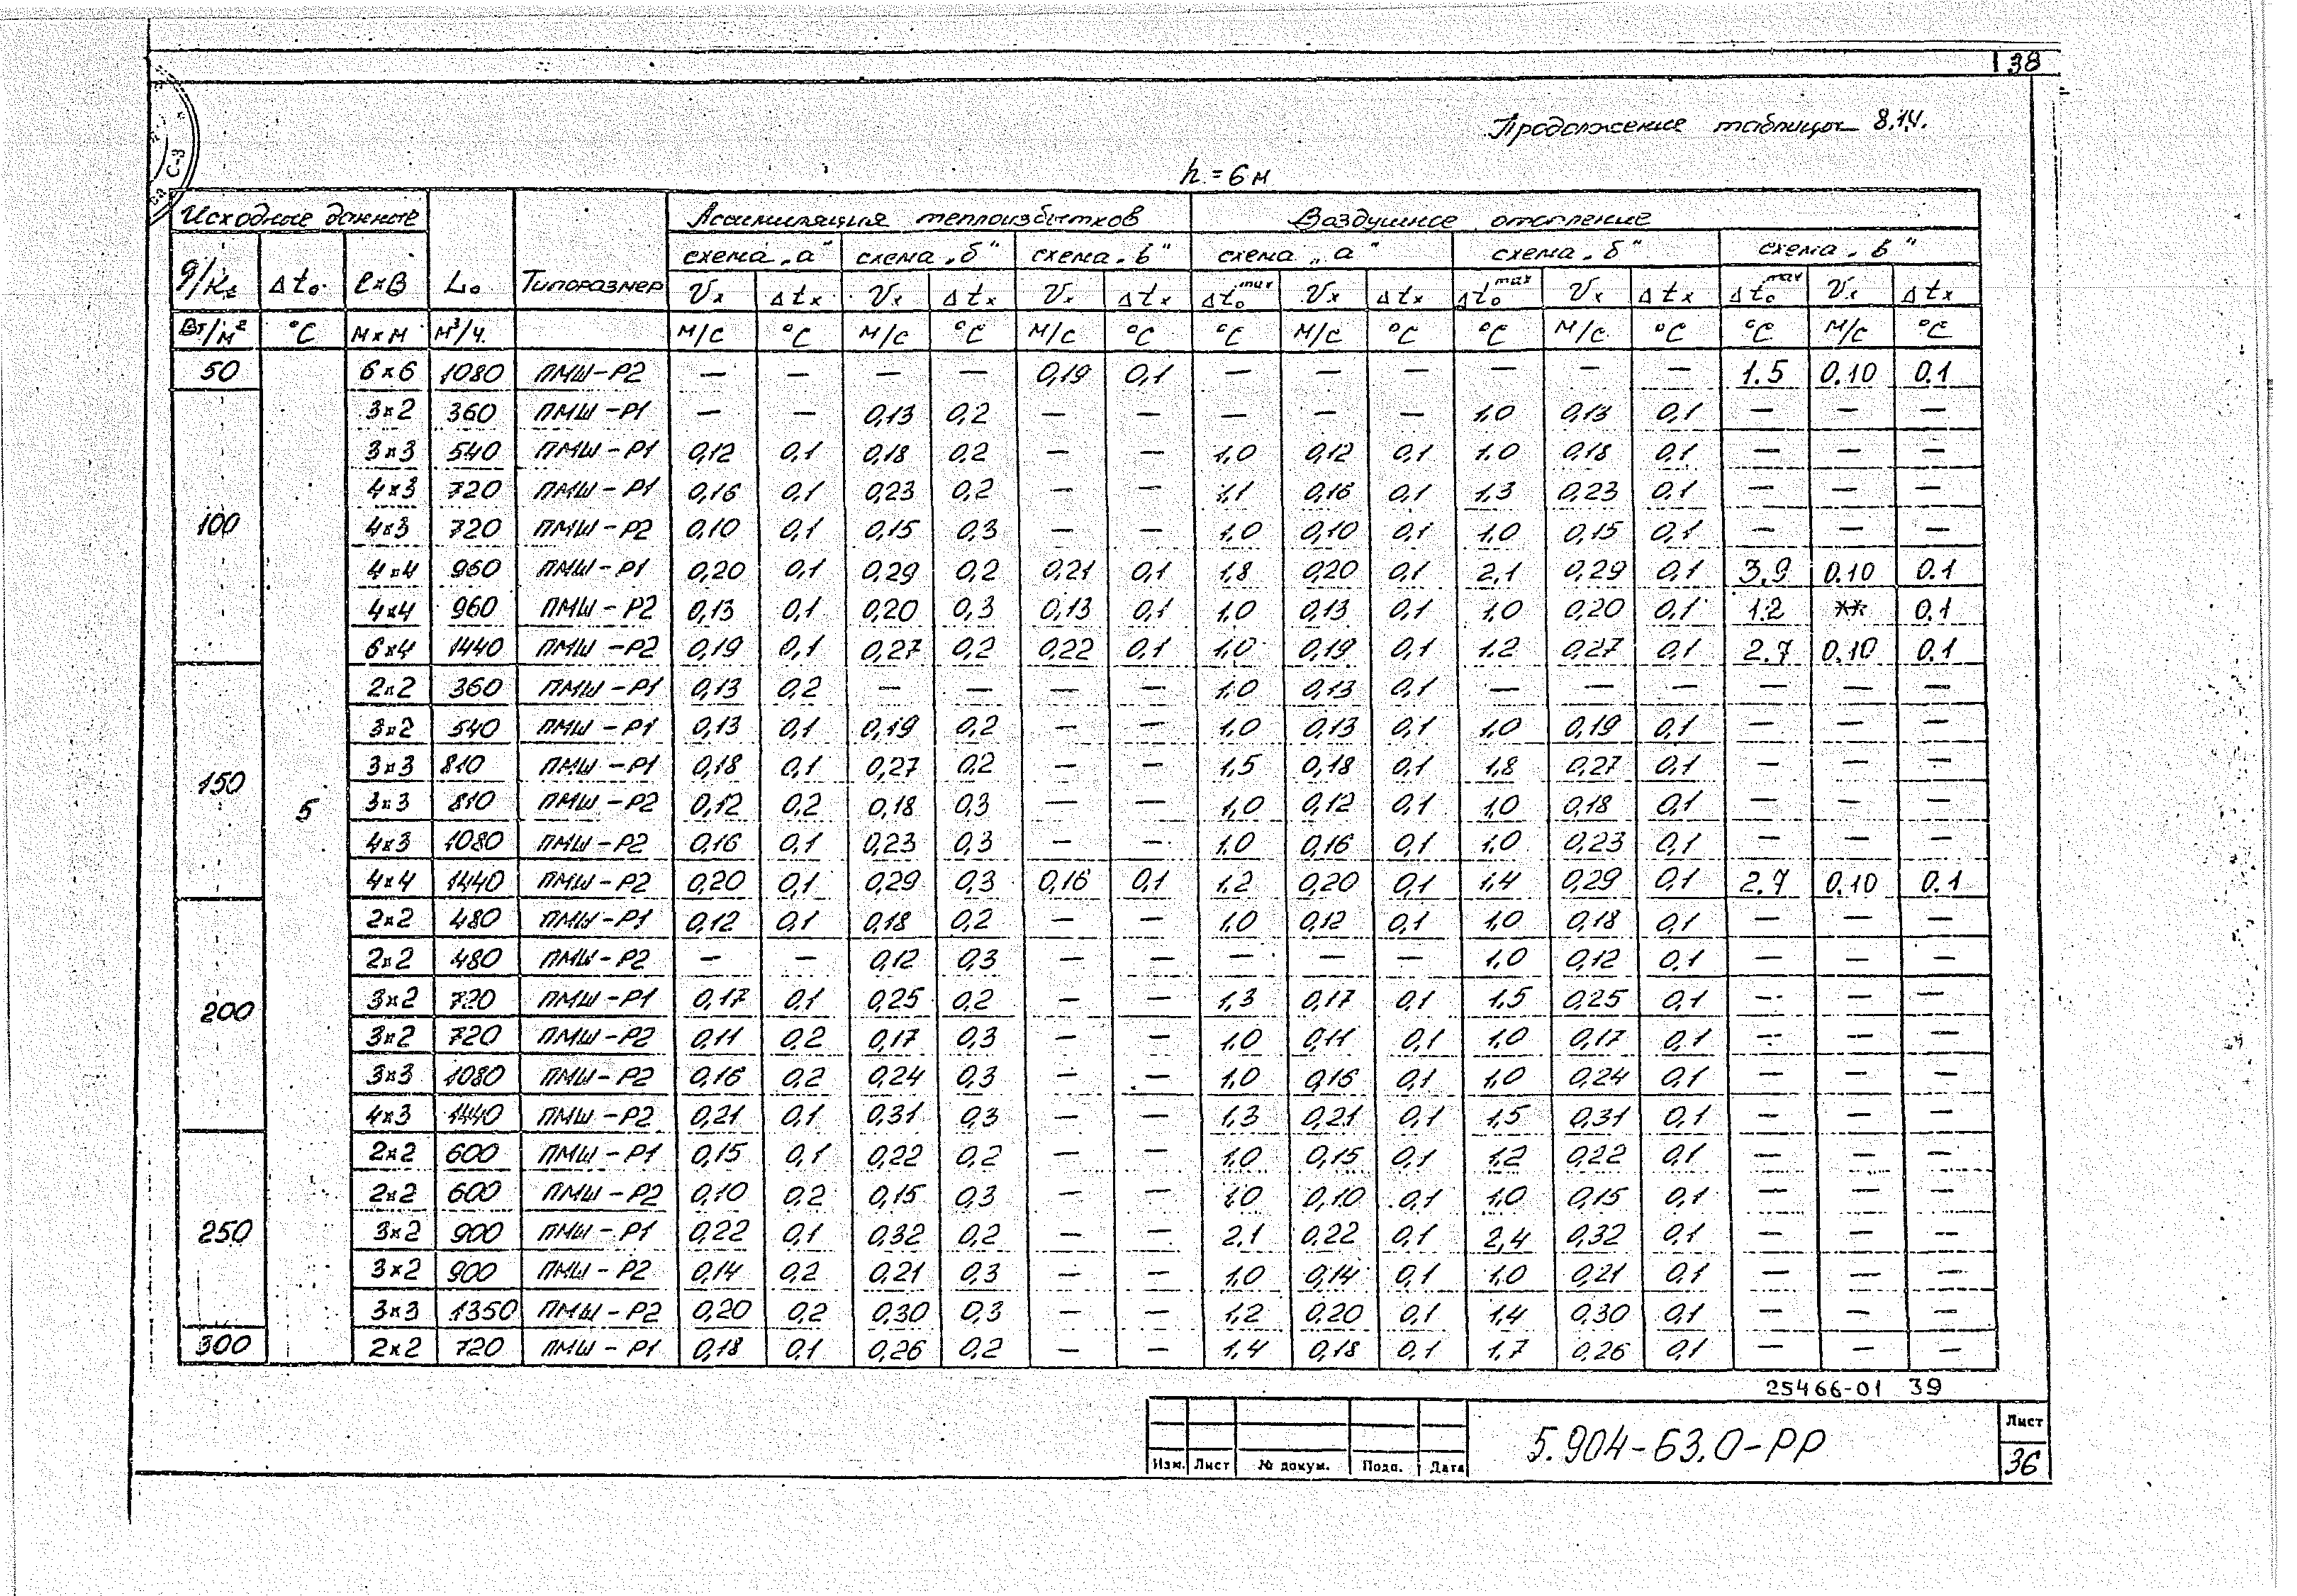 38
Продолжение таблицы 8.14.
h = 6 м
Исходные данные L₀ Типоразмер Ассимиляция теплоизбытков Воздушное отопление
схема „а" схема „б" схема „в" схема „а" схема „б" схема „в"
Δt₀ l×B Vx Δtx Vx Δtx Vx Δtx Δt₀max Vx Δtx Δt₀max Vx Δtx Δt₀max Vx Δtx
Вт/м² °C м×м м³/ч. м/с °C м/с °C м/с °C °C м/с °C °C м/с °C °C м/с °C
50 6×6 1080 ПМШ-Р2 — — — — 0,19 0,1 — — — — — — 1.5 0.10 0.1
3×2 360 ПМШ-Р1 — — 0,13 0,2 — — — — — 1,0 0,13 0,1 — — —
3×3 540 ПМШ-Р1 0,12 0,1 0,18 0,2 — — 1,0 0,12 0,1 1.0 0,18 0,1 — — —
4×3 720 ПМШ-Р1 0,16 0,1 0,23 0,2 — — 1,1 0,16 0,1 1,3 0,23 0,1 — — —
100 4×3 720 ПМШ-Р2 0,10 0,1 0,15 0,3 — — 1,0 0,10 0,1 1,0 0,15 0,1 — — —
4×4 960 ПМШ-Р1 0,20 0,1 0,29 0,2 0,21 0,1 1,8 0,20 0,1 2,1 0,29 0,1 3.9 0.10 0.1
4×4 960 ПМШ-Р2 0,13 0,1 0,20 0,3 0,13 0,1 1,0 0,13 0,1 1,0 0,20 0,1 1.2 ** 0.1
6×4 1440 ПМШ-Р2 0,19 0,1 0,27 0,2 0,22 0,1 1,0 0,19 0,1 1.2 0,27 0,1 2.7 0.10 0.1
2×2 360 ПМШ-Р1 0,13 0,2 — — — — 1,0 0,13 0,1 — — — — — —
3×2 540 ПМШ-Р1 0,13 0,1 0,19 0,2 — — 1,0 0,13 0,1 1,0 0,19 0,1 — — —
3×3 810 ПМШ-Р1 0,18 0,1 0,27 0,2 — — 1,5 0,18 0,1 1,8 0,27 0,1 — — —
150 5 3×3 810 ПМШ-Р2 0,12 0,2 0,18 0,3 — — 1,0 0,12 0,1 1,0 0,18 0,1 — — —
4×3 1080 ПМШ-Р2 0,16 0,1 0,23 0,3 — — 1,0 0,16 0,1 1,0 0,23 0,1 — — —
4×4 1440 ПМШ-Р2 0,20 0,1 0,29 0,3 0,16 0,1 1,2 0,20 0,1 1,4 0,29 0,1 2.7 0.10 0.1
2×2 480 ПМШ-Р1 0,12 0,1 0,18 0,2 — — 1,0 0,12 0,1 1,0 0,18 0,1 — — —
2×2 480 ПМШ-Р2 — — 0,12 0,3 — — — — — 1,0 0,12 0,1 — — —
200 3×2 720 ПМШ-Р1 0,17 0,1 0,25 0,2 — — 1,3 0,17 0,1 1,5 0,25 0,1 — — —
3×2 720 ПМШ-Р2 0,11 0,2 0,17 0,3 — — 1,0 0,11 0,1 1,0 0,17 0,1 — — —
3×3 1080 ПМШ-Р2 0,16 0,2 0,24 0,3 — — 1,0 0,16 0,1 1,0 0,24 0,1 — — —
4×3 1440 ПМШ-Р2 0,21 0,1 0,31 0,3 — — 1,3 0,21 0,1 1,5 0,31 0,1 — — —
2×2 600 ПМШ-Р1 0,15 0,1 0,22 0,2 — — 1,0 0,15 0,1 1,2 0,22 0,1 — — —
2×2 600 ПМШ-Р2 0,10 0,2 0,15 0,3 — — 1,0 0,10 0,1 1,0 0,15 0,1 — — —
250 3×2 900 ПМШ-Р1 0,22 0,1 0,32 0,2 — — 2,1 0,22 0,1 2,4 0,32 0,1 — — —
3×2 900 ПМШ-Р2 0,14 0,2 0,21 0,3 — — 1,0 0,14 0,1 1,0 0,21 0,1 — — —
3×3 1350 ПМШ-Р2 0,20 0,2 0,30 0,3 — — 1,2 0,20 0,1 1,4 0,30 0,1 — — —
300 2×2 720 ПМШ-Р1 0,18 0,1 0,26 0,2 — — 1,4 0,18 0,1 1,7 0,26 0,1 — — —
25466-01 39
5.904-63.0-РР Лист
Изм. Лист № докум. Подп. Дата 36